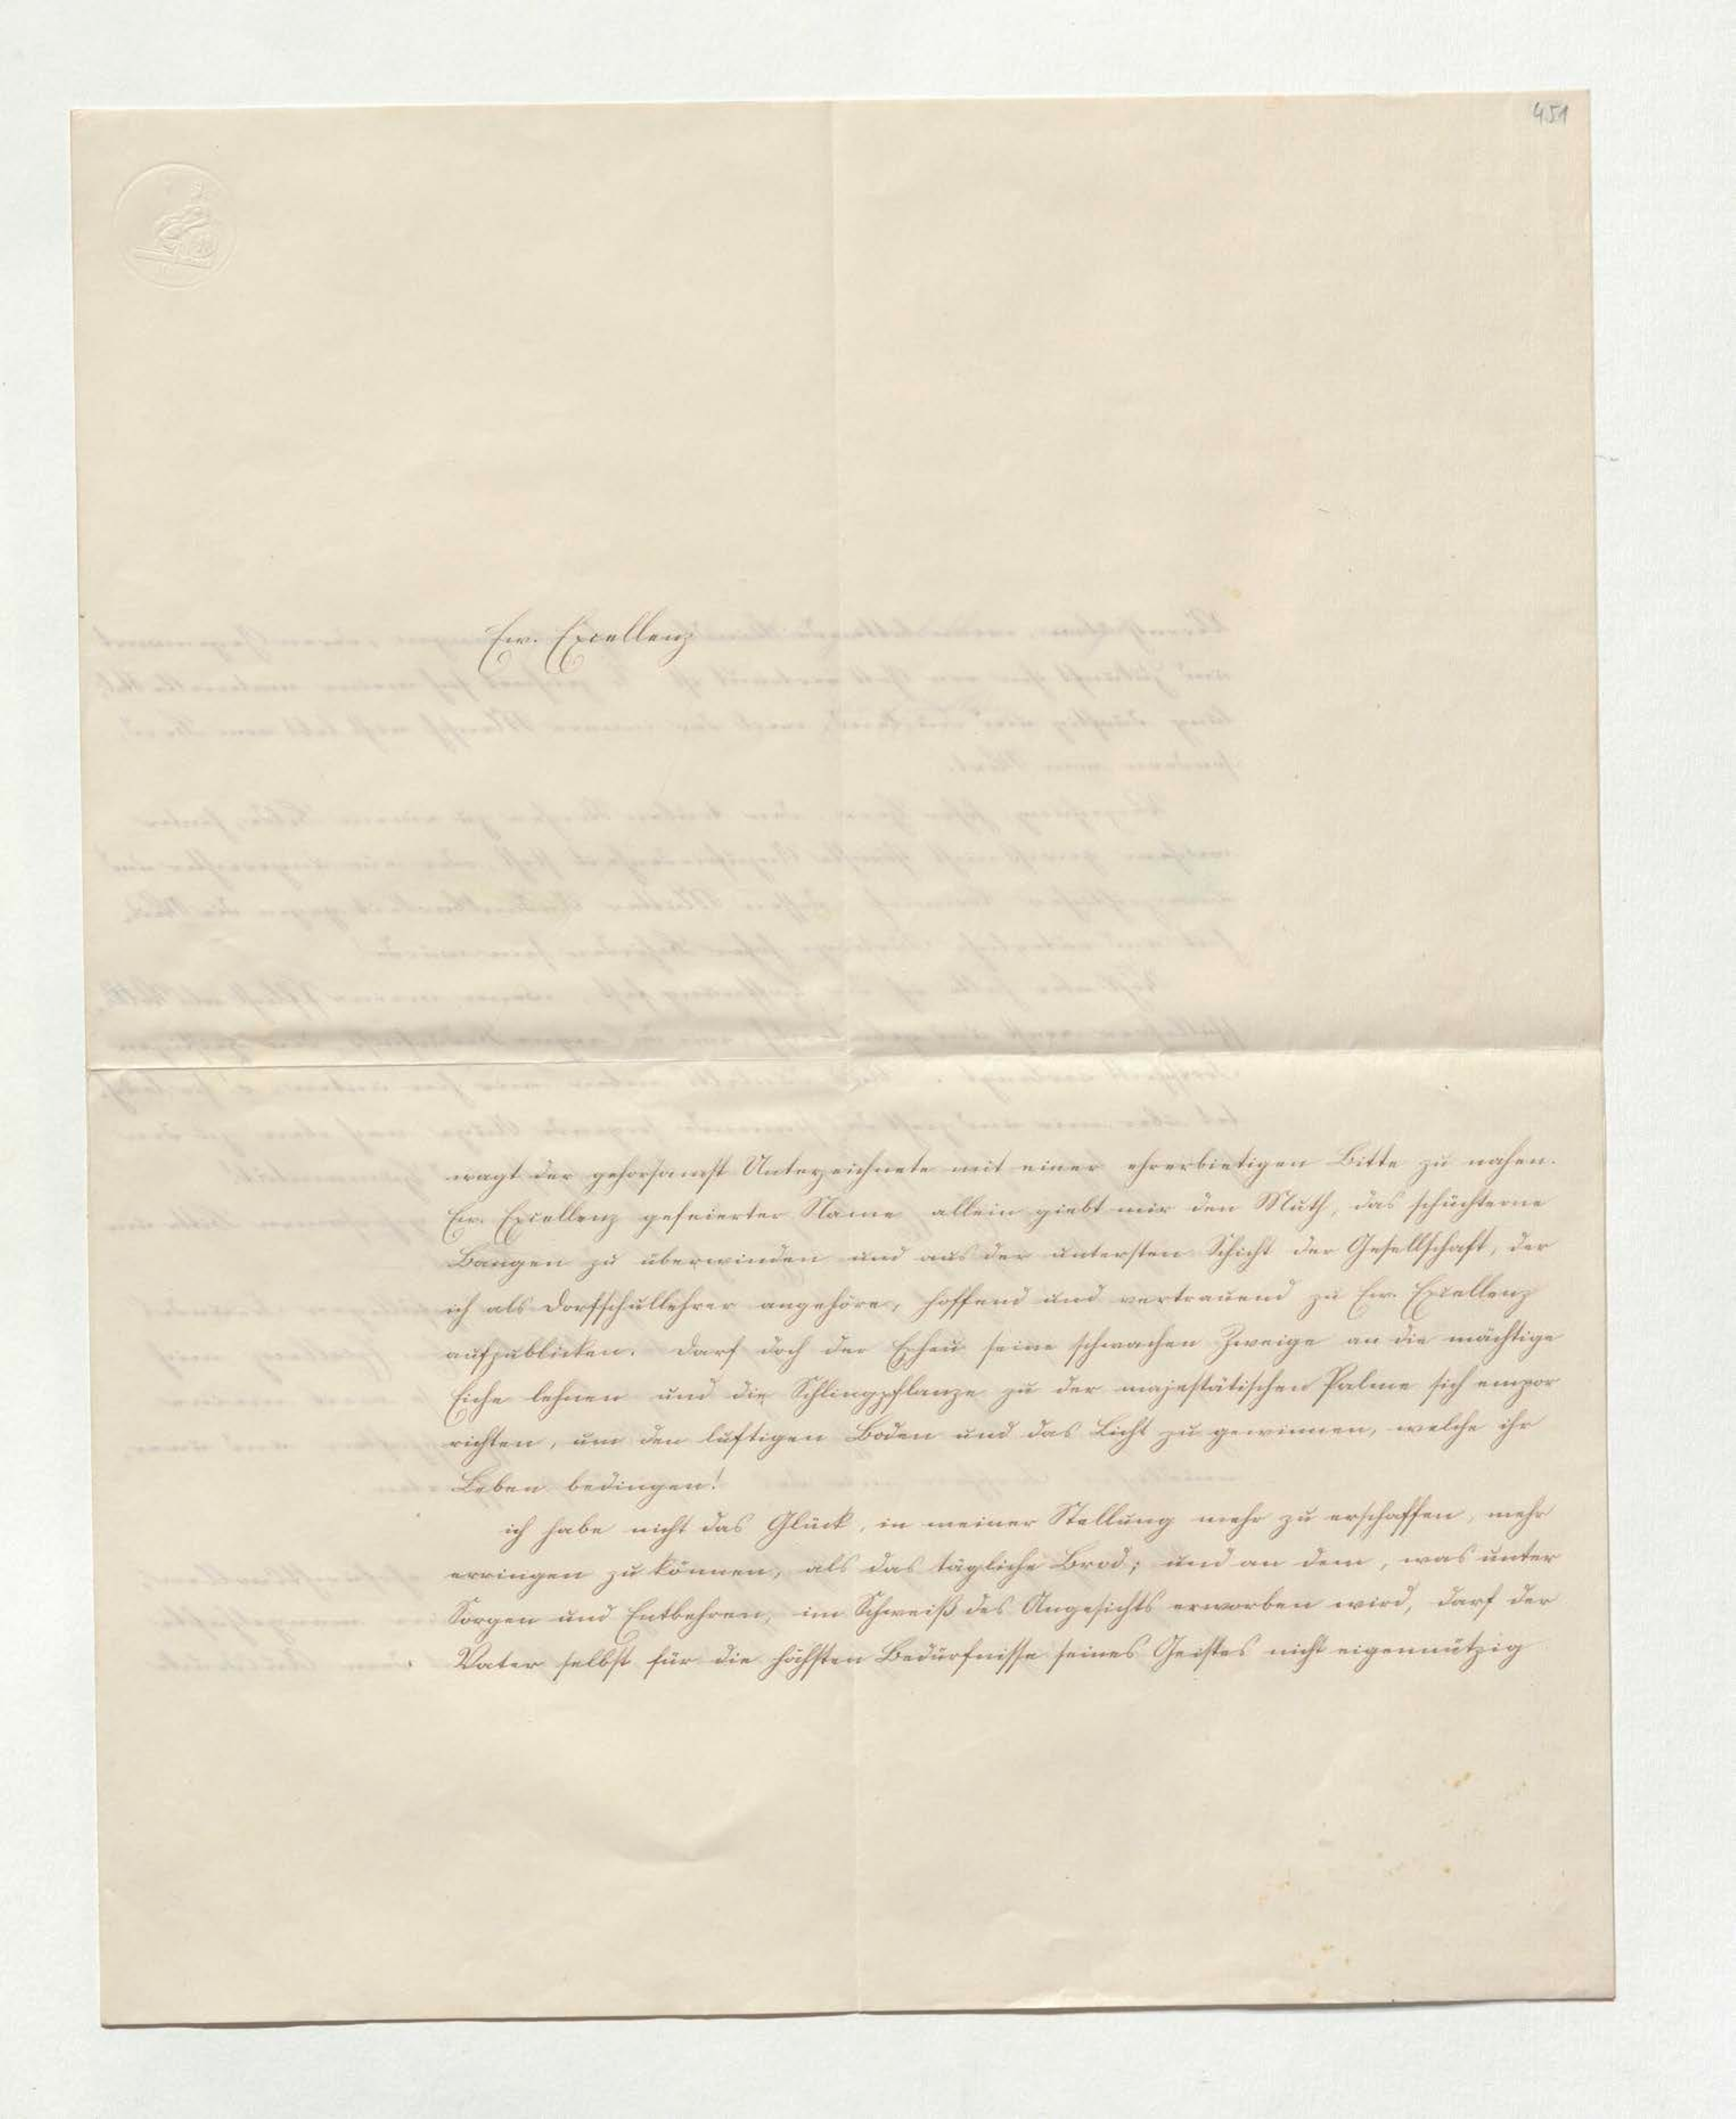 451
Ew. Excellenz
wagt der gehorsamst Unterzeichnete mit einer ehrerbietigen Bitte zu nahen.
Ew. Excellenz gefeierter Name allein giebt mir den Muth, das schüchterne
Bangen zu überwinden und aus der untersten Schicht der Gesellschaft, der
ich als Dorfschullehrer angehöre, hoffend und vertrauend zu Ew. Excellenz
aufzublicken. Darf doch der Epheu seine schwachen Zweige an die mächtige
Eiche lehnen und die Schlingpflanze zu der majestätischen Palme sich empor
richten, um den luftigen Boden und das Licht zu gewinnen, welche ihr
Leben bedingen!
ich habe nicht das Glück, in meiner Stellung mehr zu erschaffen, mehr
erringen zu können, als das tägliche Brod; und an dem, was unter
Sorgen und Entbehren, im Schweiß des Angesichts erworben wird, darf der
Vater selbst für die höchsten Bedürfnisse seines Geistes nicht eigennützig